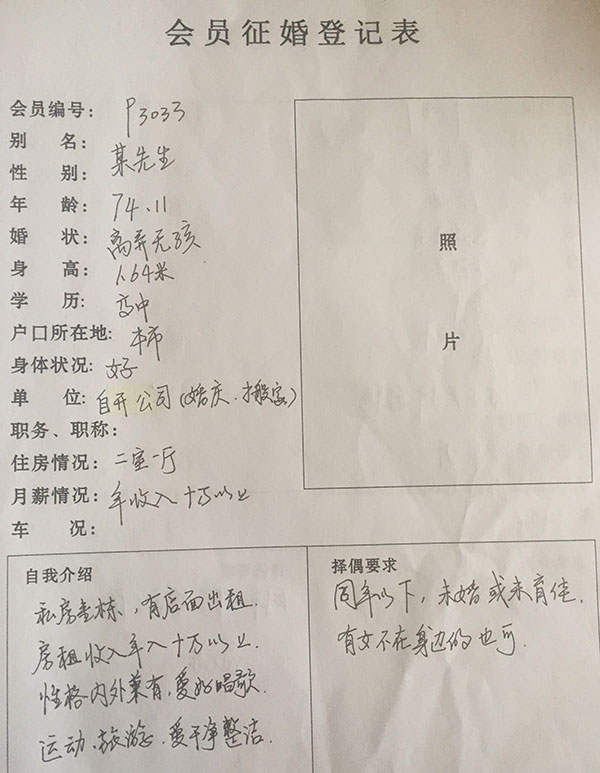 会员征婚登记表
会员编号: P3033
别 名: 某先生
性 别:
年 龄: 74.11
婚 状: 离异无孩
身 高: 1.64米
学 历: 高中
户口所在地: 本市
身体状况: 好
单 位: 自开公司(婚庆.搬家)
职务、职称:
住房情况: 二室一厅
月薪情况: 年收入十万以上
车 况:
照
片
自我介绍
私房壹栋,有店面出租.
房租收入年入十万以上.
性格内外兼有,爱好唱歌.
运动.旅游.爱干净整洁.
择偶要求
同年以下,未婚或未育佳.
有女不在身边的也可.